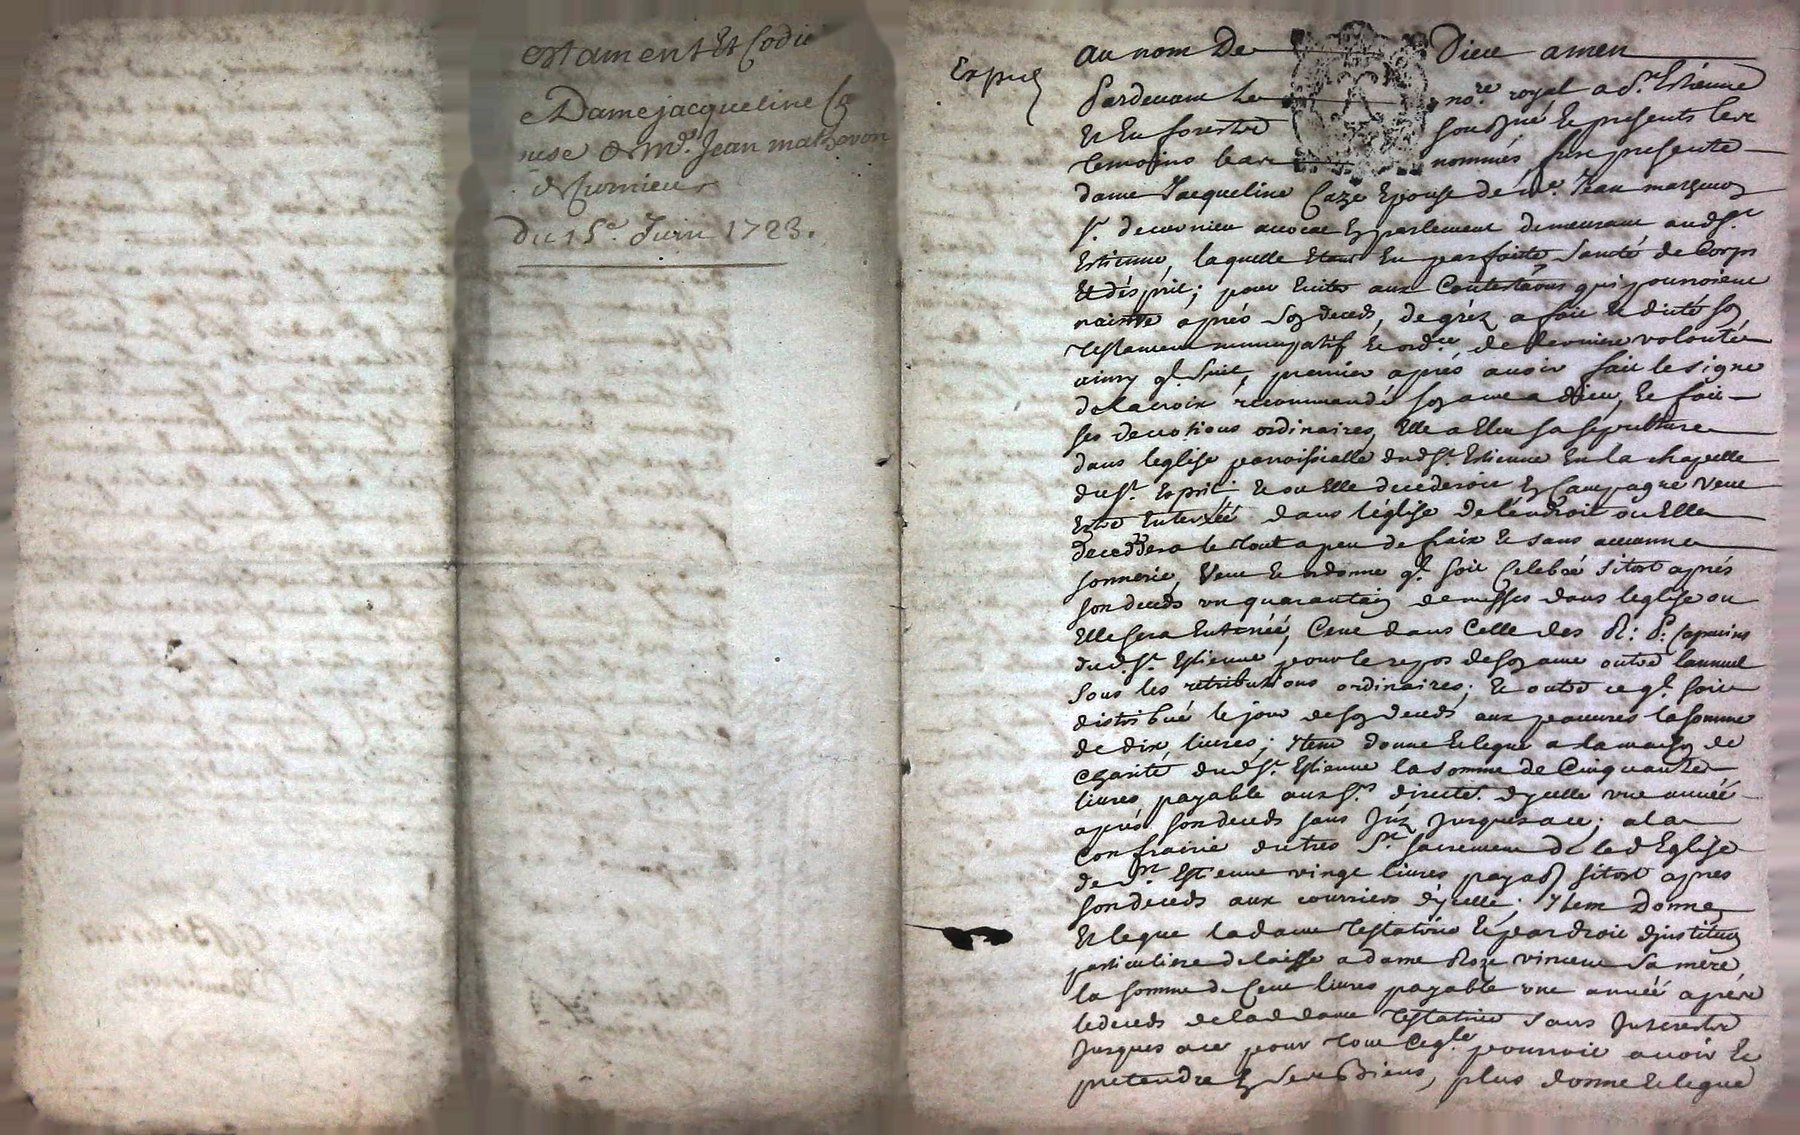 estament Et Codic
e Dame jacqueline Caz
use de Mr. Jean matheron
de Curnieu
Du 15e. Juin 1723.
Expié
au nom De Dieu amen
Pardevant Le nore. royal a St. Estienne
Et En forestz soussigné Et presents les
temoins bas nommés fust presente
dame Jacqueline Caze Epouse de me. Jean
sr. de curnieu avocat En parlement demeurant audt. St.
Estienne, laquelle Etant En parfaite Santé de Corps
Et désprit; pour Eviter aux Contestaons qui pourroient
naistre aprés son deceds, de gréz a fait Et dicté son
Testament nuncupatif Et ordce. de derniere volonté
ainsy ql. Suit, premier aprés avoir fait le signe
de la croix recommandé son ame a dieu, Et fait
ses devotions ordinaires, Elle a Eleu sa sepulture
dans leglise parroissialle dudt. St. Estienne En la chapelle
du St. Esprit, Et ou Elle decederoit En Campagne Veut
Estre Enterrée dans léglise de léndroit ou Elle
decedera le tout a peu de fraix Et sans aucunne
sonnerie, Veut Et ordonne ql. soit Celebré sitost aprés
son deceds un quarantain de messes dans leglise ou
Elle sera Enterrée, Cent dans Celle des R: P: Capucins
dudt. St. Estienne pour le repos de son ame outre lannuel
sous les retributions ordinaires; Et outre ce ql. soit
distribué le jour de son decedz aux pauvres la somme
de dix livres; Item donne Et legue a la maison de
Charité dudt. St. Estienne la somme de Cinquante
livres payable aux srs. directrs. dycelle une année
aprés son deceds sans Jntz Jusques a ce; a la
Confrairie du tres St. Sacrement de lad Eglise
de St. Estienne vingt livres payab sitost apres
son deceds aux courriers dycelle; Item Donne
Et legue la dame testatrice Et par droit dinstituon
particuliere delaisse a dame Roze vincent Sa mere
la somme de Cent livres payable une année apres
le deceds de lad dame Testatrice sans Jnterestz
Jusques a ce pour tout Ce qle. pourroit avoir Et
pretendre En Ses Biens, plus donne Et legue